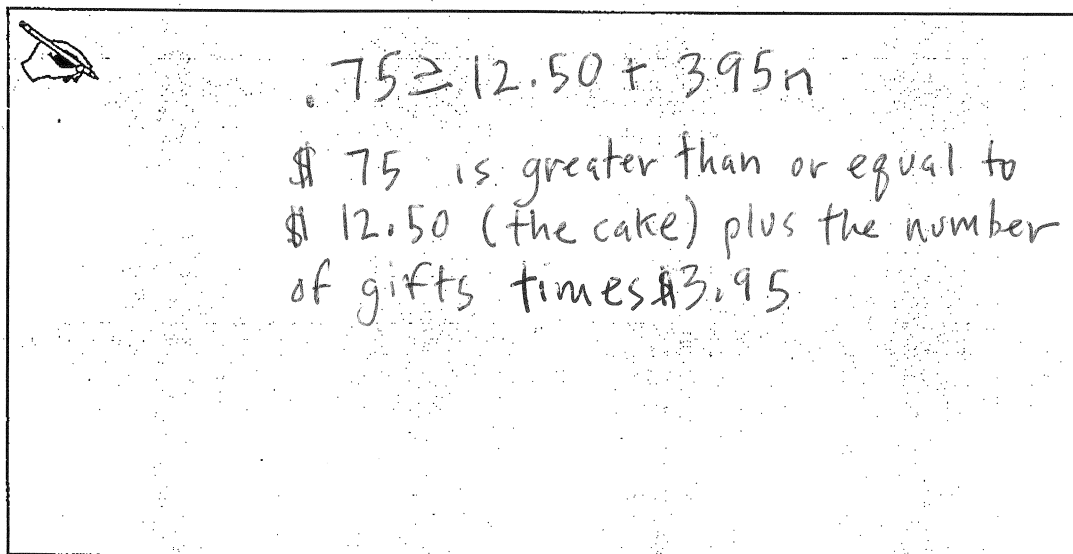 .75 ≥ 12.50 + 395n
$ 75 is greater than or equal to
$ 12.50 (the cake) plus the number
of gifts times $3.95